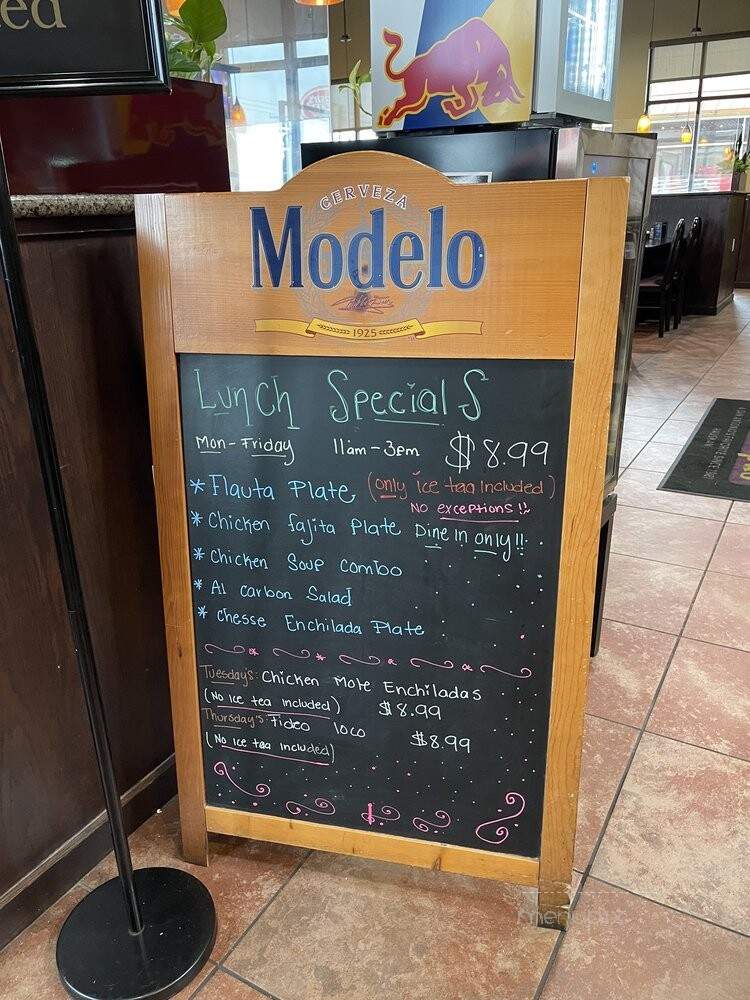 ed
CERVEZA
Modelo
1925
Lunch Specials
Mon-Friday 11am-3pm $8.99
* Flauta Plate (only ice tea included)
No exceptions!!
* Chicken fajita Plate Dine in only!!
* Chicken Soup combo
* Al carbon Salad
* Chesse Enchilada Plate
Tuesday's: Chicken Mole Enchiladas
(No Ice tea included) $8.99
Thursday's: Fideo loco
(No Ice tea included) $8.99
menupix